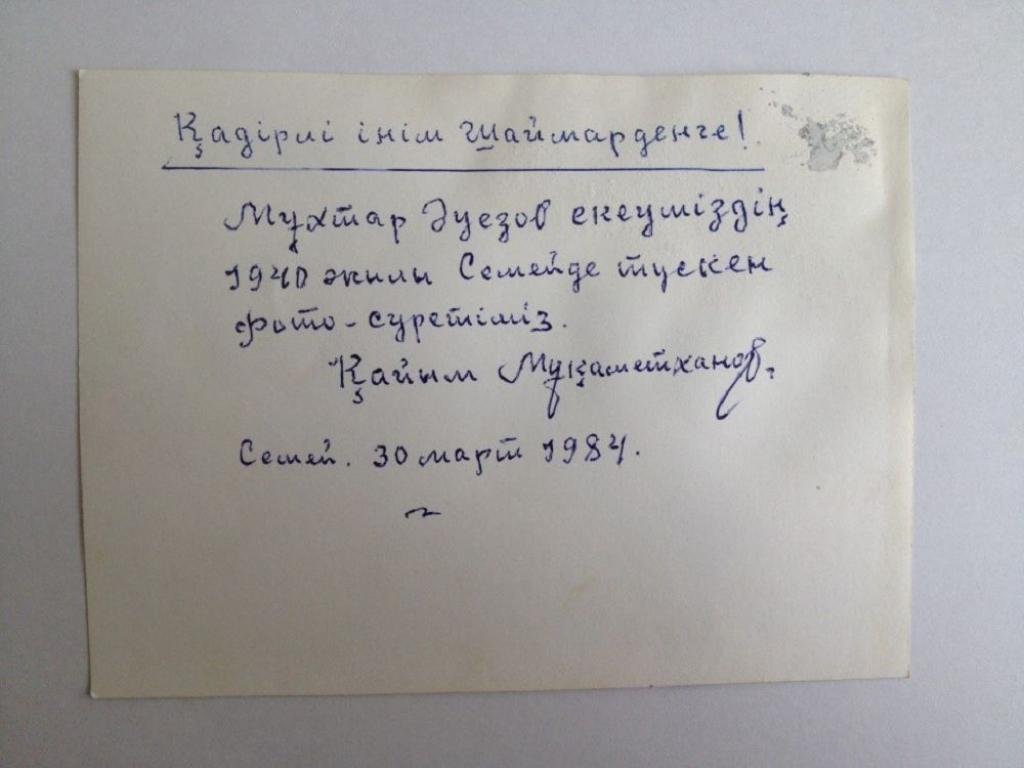 Қадірлі інім Шаймарденге!
Мұхтар Әуезов екеуміздің
1940 жылы Семейде түскен
фото-суретіміз.
Қайым Мұқаметханов.
Семей. 30 март 1984.